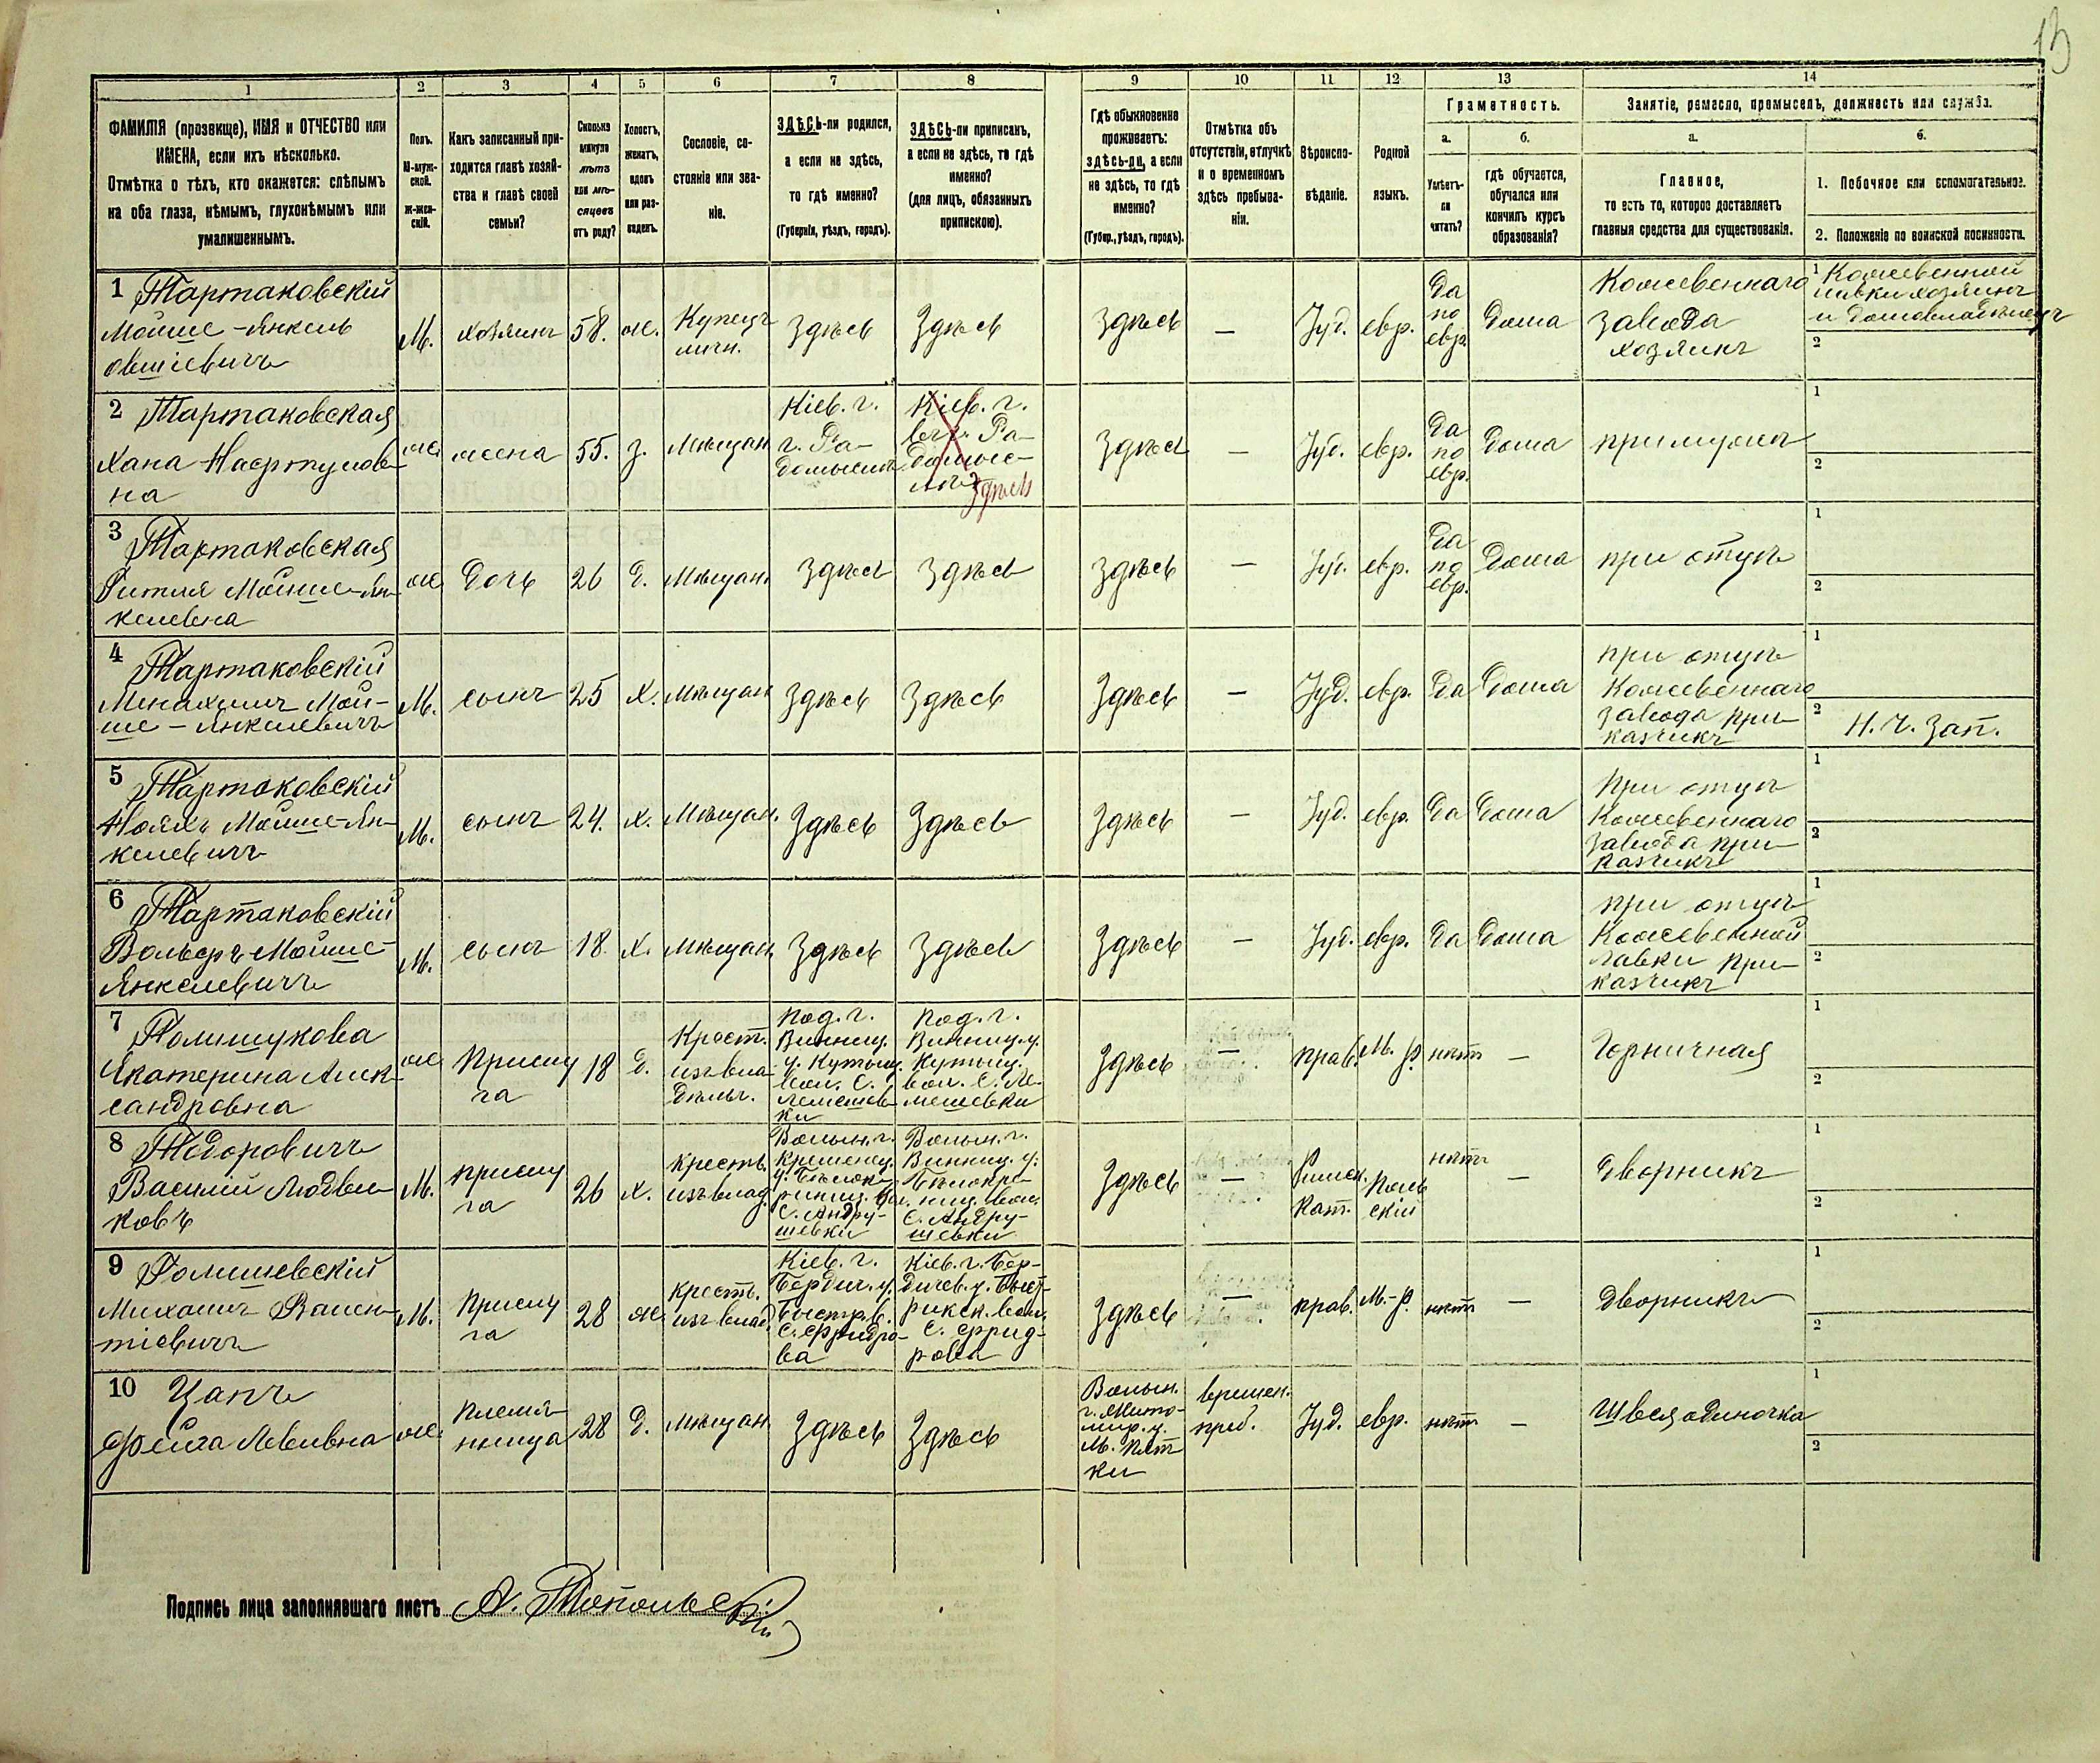 13
1
2
3
4
5
6
7
8
9
10
11
12
13
14
ФАМИЛІЯ (прозвище), ИМЯ и ОТЧЕСТВО или
ИМЕНА, если ихъ нѣсколько.
Отмѣтка о тѣхъ, кто окажется: слѣпымъ
на оба глаза, нѣмымъ, глухонѣмымъ или
умалишеннымъ.
Полъ.
М-муж-
ской.
Ж-жен-
скій.
Какъ записанный при-
ходится главѣ хозяй-
ства и главѣ своей
семьи?
Сколько
минуло
лѣтъ
или мѣ-
сяцевъ
отъ роду?
Холостъ,
женатъ,
вдовъ
или раз-
веденъ.
Сословіе, со-
стояніе или зва-
ніе.
ЗДѢСЬ-ли родился,
а если не здѣсь,
то гдѣ именно?
(Губернія, уѣздъ, городъ).
ЗДѢСЬ-ли приписанъ,
а если не здѣсь, то гдѣ
именно?
(для лицъ, обязанныхъ
припискою).
Гдѣ обыкновенно
проживаетъ:
здѣсь-ли, а если
не здѣсь, то гдѣ
именно?
(Губер., уѣздъ, городъ).
Отмѣтка объ
отсутствіи, отлучкѣ
и о временномъ
здѣсь пребыва-
ніи.
Вѣроиспо-
вѣданіе.
Родной
языкъ.
Грамотность.
а.
Умѣетъ-
ли
читать?
б.
гдѣ обучается,
обучался или
кончилъ курсъ
образованія?
Занятіе, ремесло, промыселъ, должность или служба.
а.
Главное,
то есть то, которое доставляетъ
главныя средства для существованія.
б.
1. Побочное или вспомогательное.
2. Положеніе по воинской повинности.
1 Тартаковскій
Мойше-Янкель
Овшіевичъ
М.
хозяинъ
58.
ж.
Купецъ
личн.
Здѣсь
Здѣсь
Здѣсь
—
Іуд.
евр.
Да
по
евр.
Дома
Кожевеннаго
завода
хозяинъ
1 Кожевенной
лавки хозяинъ
и домовладѣлецъ
2
2 Тартаковская
Хана
на
ж.
жена
55.
з.
Мѣщан.
Кіев. г.
г. Ра-
домыслѣ
Кіев. г.
Ра-
домыс-
лѣ
Здѣсь
Здѣсь
—
Іуд.
евр.
Да
по
евр.
Дома
при мужѣ
1
2
3 Тартаковская
Гитля Мойше-Ян-
келевна
ж.
Дочь
26
д.
Мѣщан.
Здѣсь
Здѣсь
Здѣсь
—
Іуд.
евр.
Да
по
евр.
Дома
при отцѣ
1
2
4 Тартаковскій
Менахимъ Мой-
ше-Янкелевичъ
М.
сынъ
25
х.
Мѣщан.
Здѣсь
Здѣсь
Здѣсь
—
Іуд.
евр.
Да
Дома
при отцѣ
Кожевеннаго
завода при-
казчикъ
1
2 Н. Ч. Зап.
5 Тартаковскій
Нояхъ Мойше-Ян-
келевичъ
М.
сынъ
24.
х.
Мѣщан.
Здѣсь
Здѣсь
Здѣсь
—
Іуд.
евр.
Да
Дома
При отцѣ
Кожевеннаго
завода при-
казчикъ
1
2
6 Тартаковскій
Вольфъ Мойше-
Янкелевичъ
М.
сынъ
18.
х.
Мѣщан.
Здѣсь
Здѣсь
Здѣсь
—
Іуд.
евр.
Да
Дома
при отцѣ
Кожевенной
лавки при-
казчикъ
1
2
7 Полищукова
Екатерина Алек-
сандровна
ж.
Прислу
га
18
д.
Крест.
изъ вла-
дѣльч.
Под. г.
Винниц.
у. Кутыщ.
вол. с.
Лемешев-
ки
Под. г.
Винниц. у.
Кутыщ.
вол. с. Ле-
мешевки
Здѣсь
—
прав.
М. р.
нѣтъ
—
Горничная
1
2
8 Тодоровичъ
Василій Людви-
ковъ
М.
прислу
га
26
х.
Крестъ.
изъ влад.
Волын. г.
Кременец.
у. Бѣлок-
риниц. вол.
с. Андру-
шевки
Волын. г.
Винниц. у.
Бѣлокри-
ниц. вол.
с. Андру-
шевки
Здѣсь
—
Римск.
Кат.
Поль
скій
нѣтъ
—
Дворникъ
1
2
9
Михаилъ Вален-
тіевичъ
М.
Прислу
га
28
ж.
крестъ.
изъ влад.
Кіев. г.
Бердич. у.
Быстр. в.
Кіев. г. Бер-
дичев. у. Быст-
рикск. вол.
Здѣсь
—
прав.
М.-р.
нѣтъ
—
Дворникъ
1
2
10 Цапъ
Фейга Левивна
ж.
Племя-
нница
28
д.
Мѣщан.
Здѣсь
Здѣсь
Волын.
г. Жито-
мир. у.
М. Пят-
ки
времен.
преб.
Іуд.
евр.
нѣтъ
—
Швея одиночка
1
2
Подпись лица заполнявшаго листъ А. Топольскій